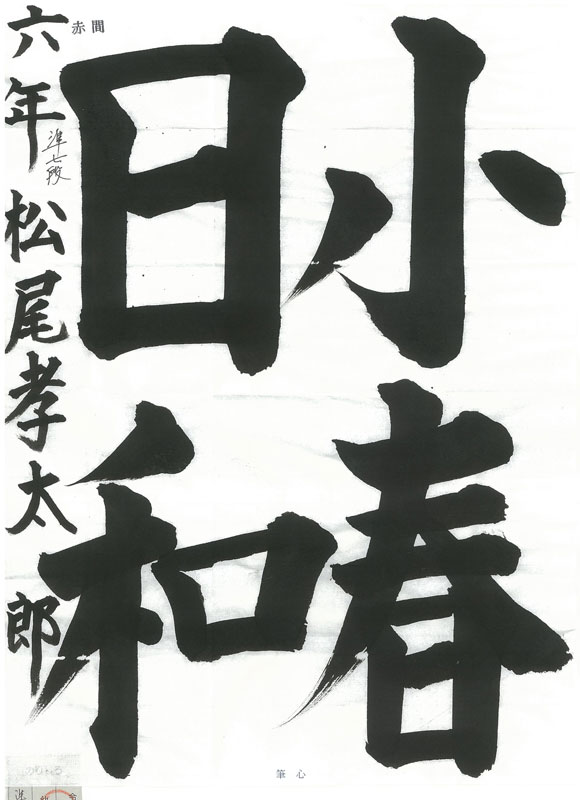 小春
日和
六年 松尾孝太郎
準七段
赤間
筆心